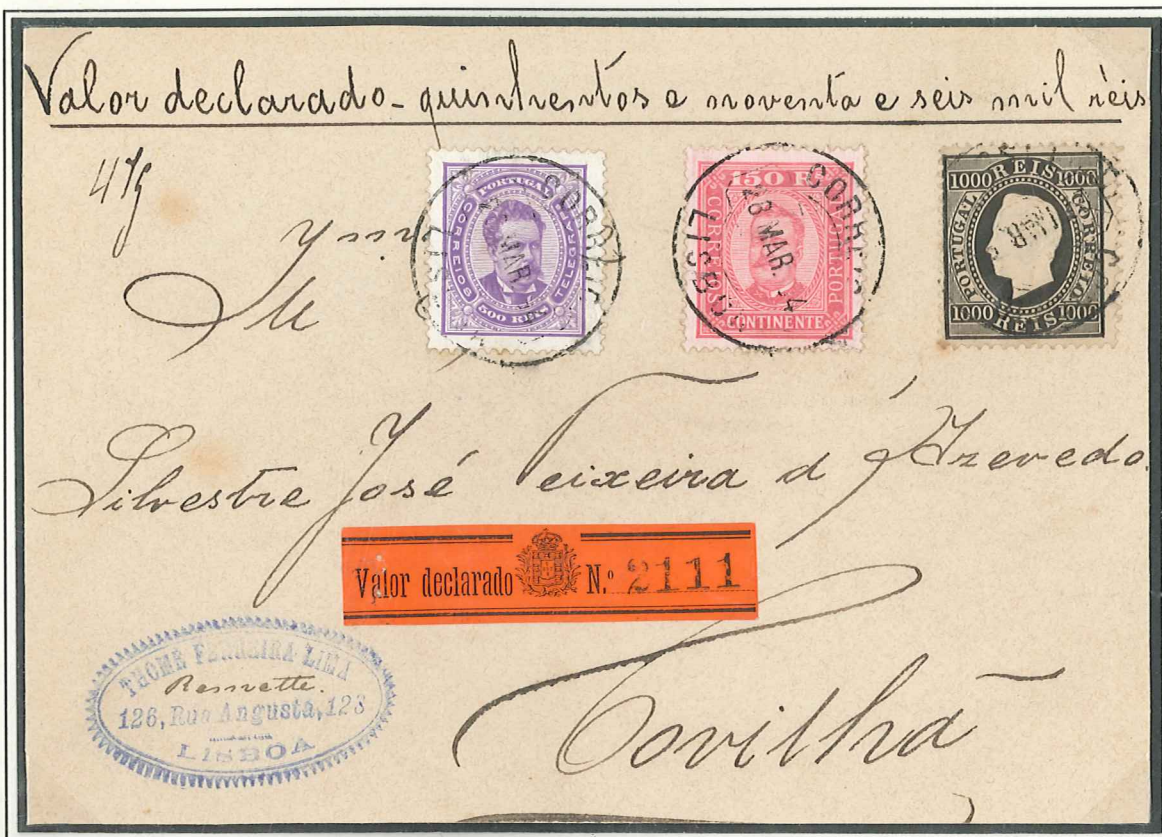 Valor declarado - quinhentos e noventa e seis mil réis
47g
CORREIOS TELEGRAPHOS
PORTUGAL
500 REIS
CORREIO
LISBOA
MAR.
150
CORREIOS PORTUGAL
CONTINENTE
CORREIO
LISBOA
28 MAR. 4
1000 REIS 1000
PORTUGAL CORREIO
1000 REIS 1000
MAR
Silvestre José Teixeira d'Azevedo
Valor declarado N.º 2111
THOME FERREIRA LIMA
Remette.
126, Rua Augusta, 128
LISBOA
Covilhã